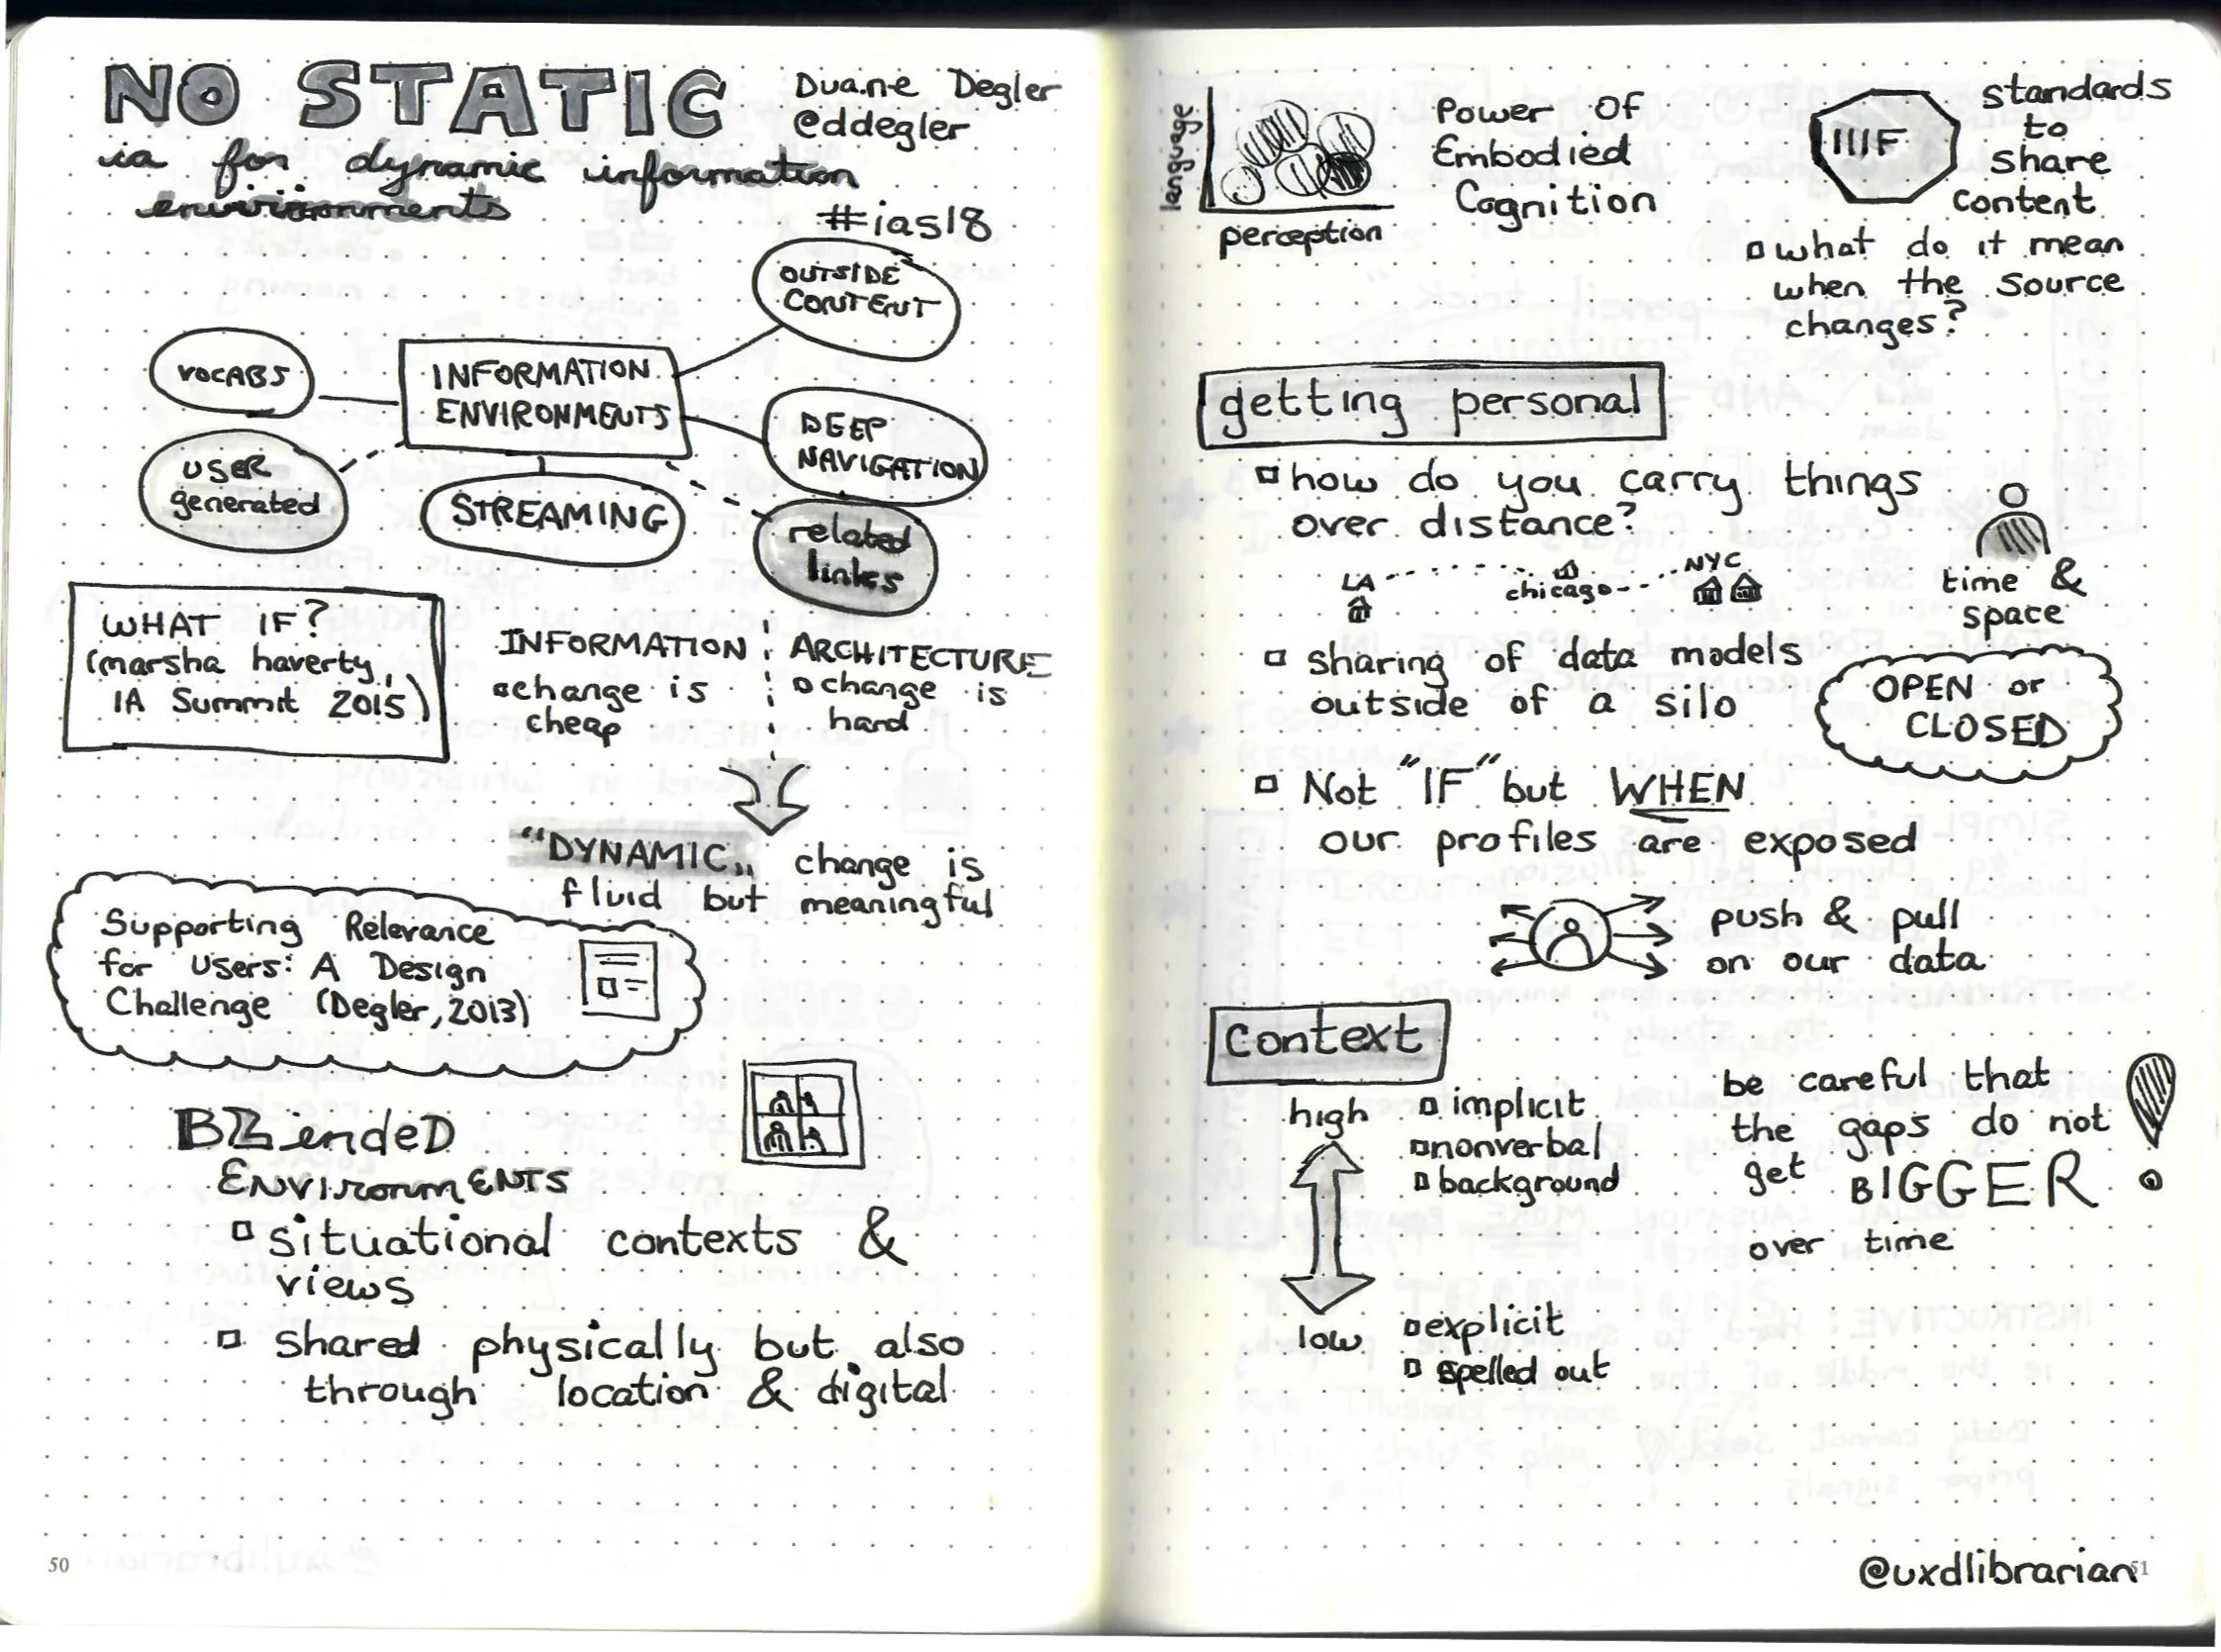 NO STATIC
Duane Degler
@ddegler
ia for dynamic information
environments
#ias18
OUTSIDE
CONTENT
VOCABS
INFORMATION
ENVIRONMENTS
DEEP
NAVIGATION
USER
generated
STREAMING
related
links
WHAT IF?
(marsha haverty,
IA Summit 2015)
INFORMATION
change is
cheap
ARCHITECTURE
change is
hard
"DYNAMIC" change is
fluid but meaningful
Supporting Relevance
for users: A Design
Challenge (Degler, 2013)
BLendeD
ENVIronmENTS
situational contexts &
views
shared physically but also
through location & digital
50
language
perception
Power Of
Embodied
Cognition
IIIF
standards
to
share
content
what do it mean
when the source
changes?
getting personal
how do you carry things
over distance?
LA
chicago
NYC
time &
space
sharing of data models
outside of a silo
OPEN or
CLOSED
Not "IF" but WHEN
our profiles are exposed
push & pull
on our data
context
high
implicit
nonverbal
background
low
explicit
spelled out
be careful that
the gaps do not
get BIGGER
over time
@uxdlibrarian
51